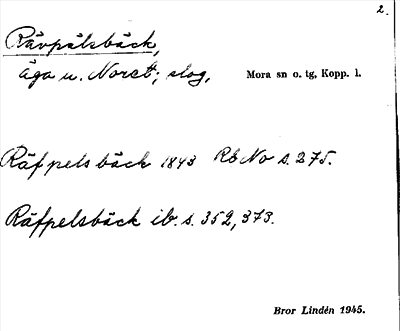 2.
Rävpälsbäck,
äga u. Noret; slog,
Mora sn o. tg, Kopp. l.
Räfpels bäck 1843 RbNo s. 275.
Räfpelsbäck ib. s. 352, 373.
Bror Lindén 1945.